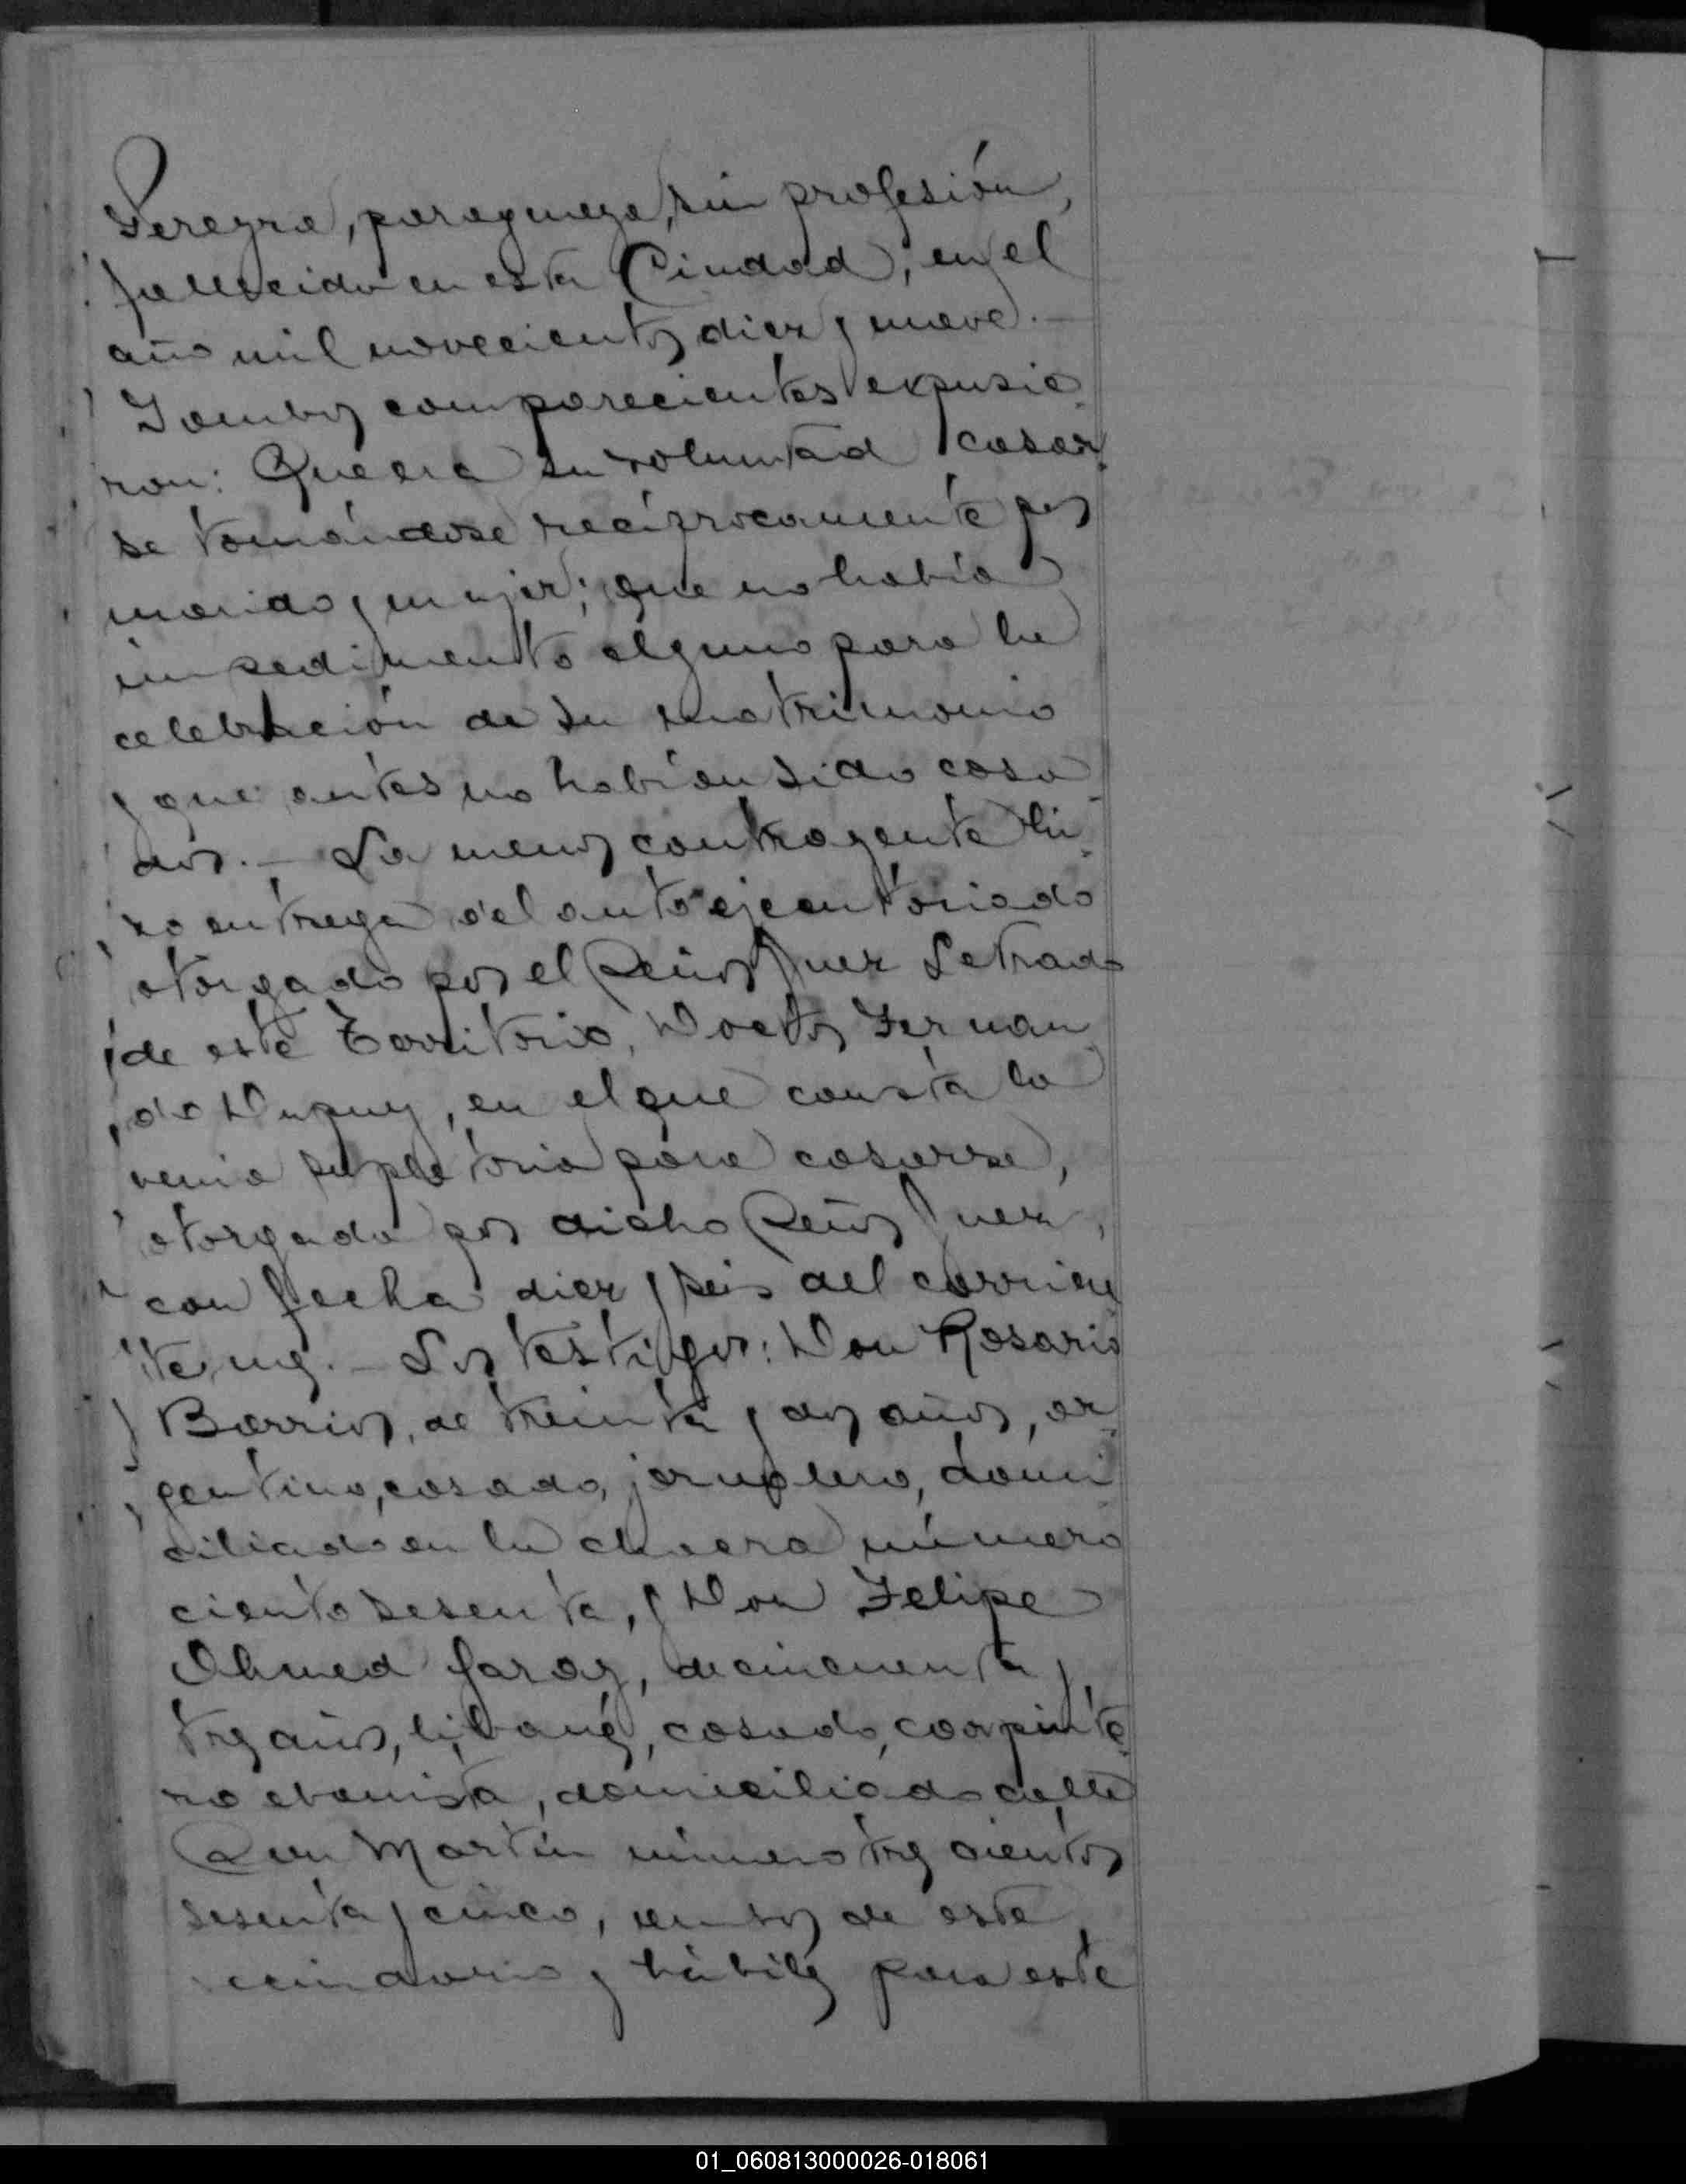 Pereyra, paraguaya, sin profesión,
fallecida en esta Ciudad, en el
año mil novecientos diez y nueve.—
Y ambos comparecientes expusie-
ron: Que era su voluntad casar-
se tomándose recíprocamente por
marido y mujer; que no había
impedimento alguno para la
celebración de su matrimonio
y que antes no habían sido casa-
dos.— La menor contrayente hi-
zo entrega del auto ejecutoriado
otorgado por el Señor Juez Letrado
de este Territorio, Doctor Fernan-
do Dupuy, en el que consta la
venia supletoria para casarse,
otorgada por dicho Señor Juez,
con fecha diez y seis del corrien
te mes.— Los testigos: Don Rosario
Barrios, de treinta y dos años, ar-
gentino, casado, jornalero, domi-
ciliado en la chacra número
ciento sesenta, y Don Felipe
Ahmed Garay, de cincuenta y
tres años, libanés, casado, carpinte-
ro ebanista, domiciliado calle
San Martín número tres cientos
sesenta y cinco, ambos de este
vecindario y hábiles para este
01_060813000026-018061